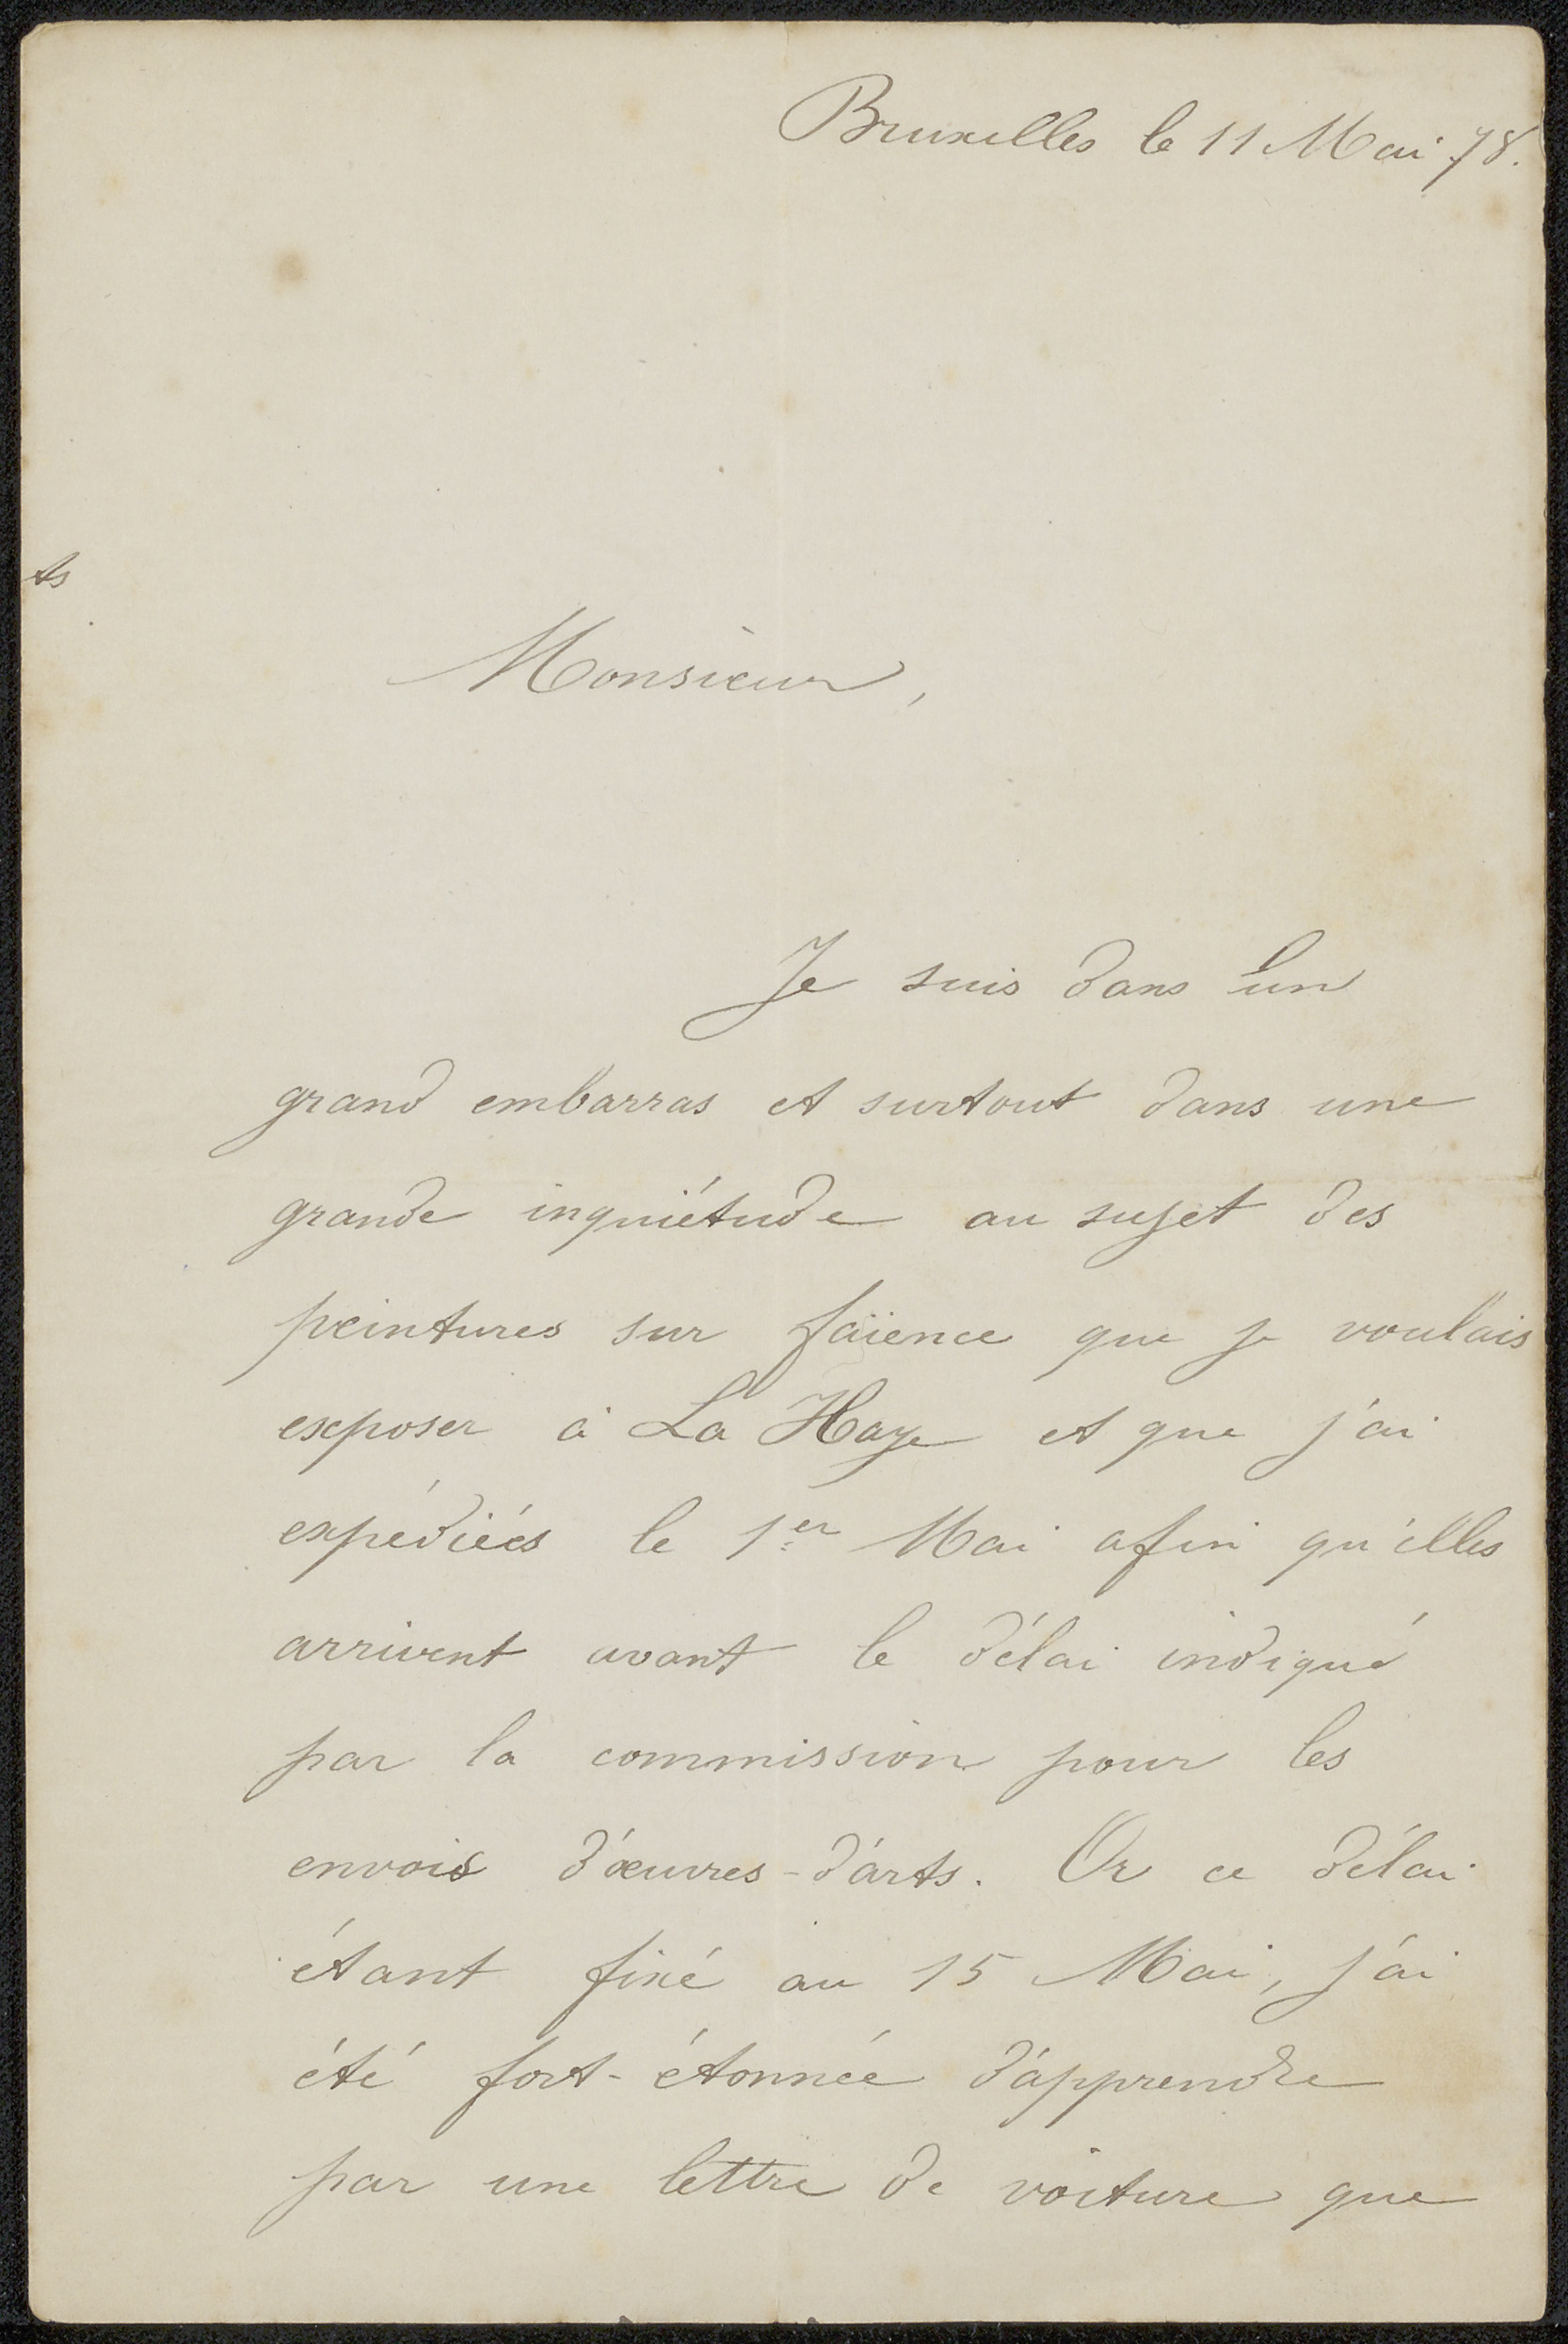 Bruxelles le 11 Mai 78.
ts
Monsieur,
Je suis dans un
grand embarras et surtout dans une
grande inquiétude au sujet des
peintures sur faïence que je voulais
exposer à La Haye et que j'ai
expédiées le 1er Mai afin qu'elles
arrivent avant le délai indiqué
par la commission pour les
envois d'œuvres-d'arts. Or ce délai
étant fixé au 15 Mai, j'ai
été fort-étonnée d'apprendre
par une lettre de voiture que